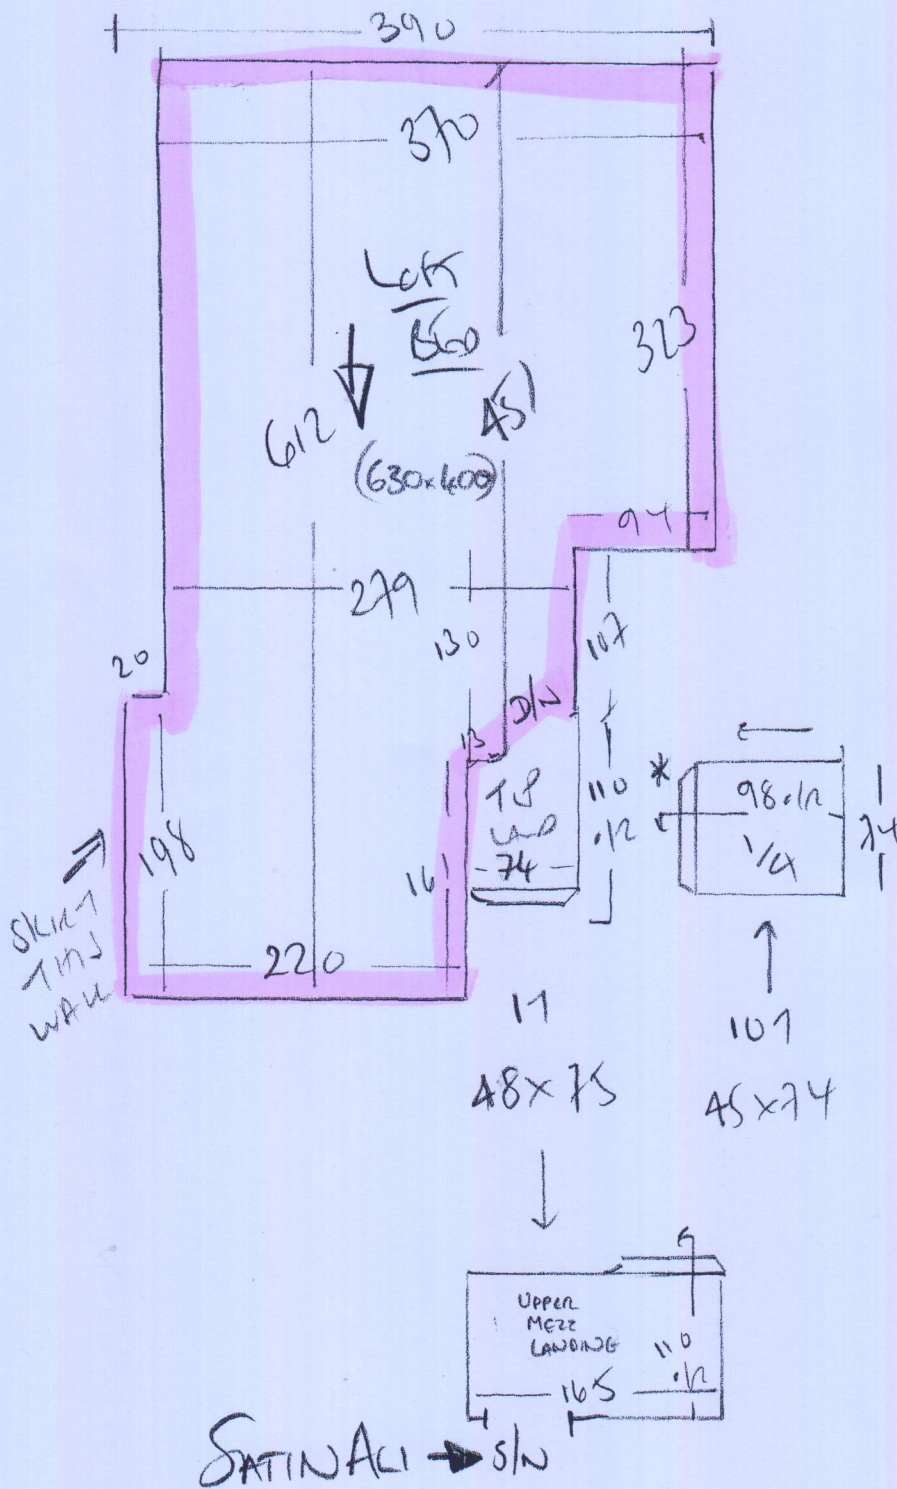 390
370
LOFT
BED
323
612
451
(630x400)
94
279
20
130
107
D/N
13
TOP
LAND
110
.12
*
98 .12
1/4
74
74
198
161
SKIRT
THIS
WALL
220
11
48x75
101
45x74
UPPER
MEZZ
LANDING
110
.12
165
SATIN ALI → S/N